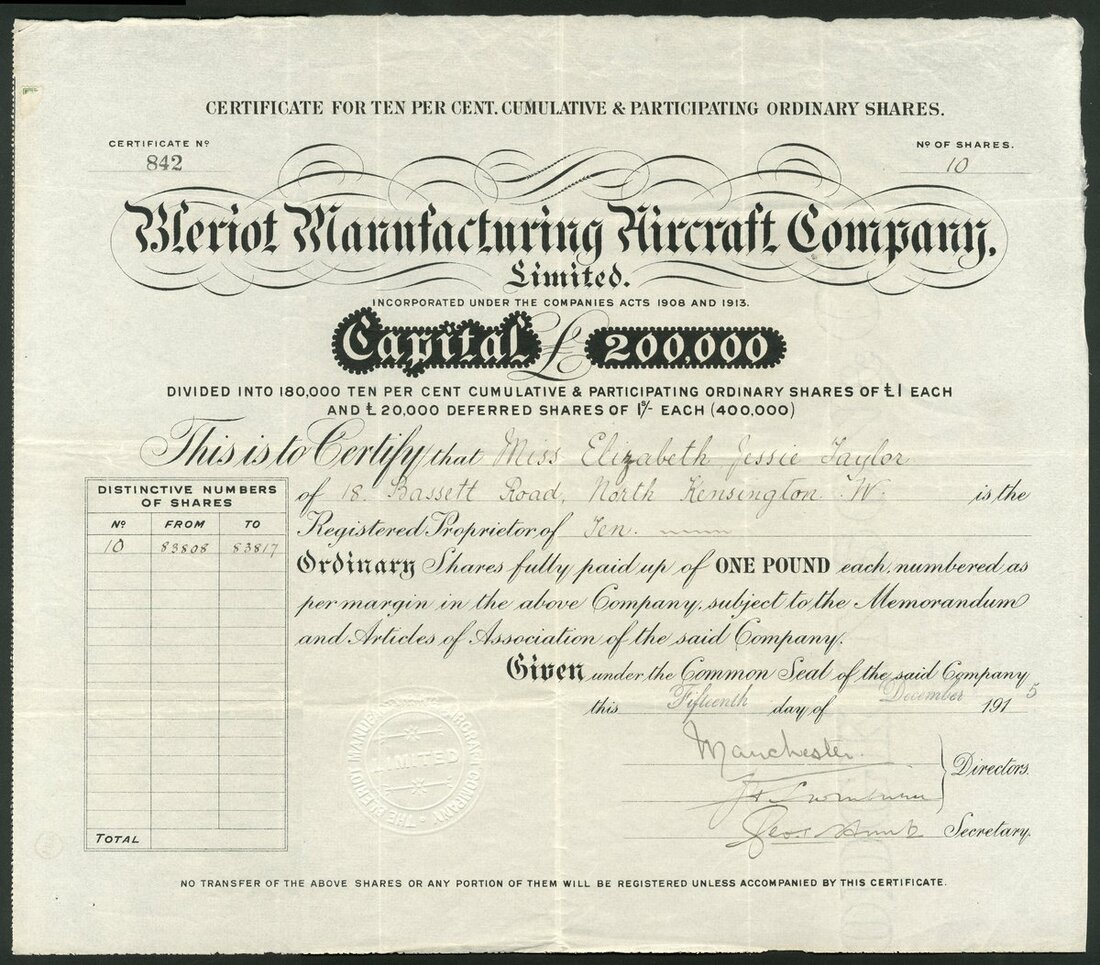 CERTIFICATE FOR TEN PER CENT. CUMULATIVE & PARTICIPATING ORDINARY SHARES.
CERTIFICATE Nº
842
Nº OF SHARES.
10
Bleriot Manufacturing Aircraft Company,
Limited.
INCORPORATED UNDER THE COMPANIES ACTS 1908 AND 1913.
Capital £ 200,000
DIVIDED INTO 180,000 TEN PER CENT CUMULATIVE & PARTICIPATING ORDINARY SHARES OF £1 EACH
AND £20,000 DEFERRED SHARES OF 1s/- EACH (400,000)
This is to Certify that Miss Elizabeth Jessie Taylor
of 18. Bassett Road, North Kensington W. is the
Registered Proprietor of Ten.
Ordinary Shares fully paid up of ONE POUND each, numbered as
per margin in the above Company, subject to the Memorandum
and Articles of Association of the said Company.
Given under the Common Seal of the said Company
this Fifteenth day of December 1915
DISTINCTIVE NUMBERS
OF SHARES
Nº FROM TO
10 83808 83817
TOTAL
THE BLERIOT MANUFACTURING AIRCRAFT COMPANY
LIMITED
Manchester
Directors.
Secretary.
NO TRANSFER OF THE ABOVE SHARES OR ANY PORTION OF THEM WILL BE REGISTERED UNLESS ACCOMPANIED BY THIS CERTIFICATE.